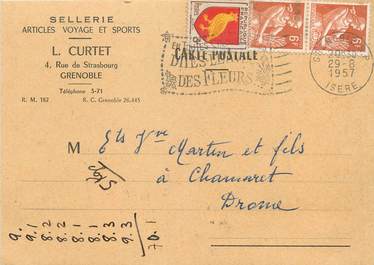 SELLERIE
ARTICLES VOYAGE ET SPORTS
L. CURTET
4, Rue de Strasbourg
GRENOBLE
Téléphone 5-71
R. M. 182 R. C. Grenoble 26.445
CARTE POSTALE
DITES
DES FLEURS
29-8
1957
ISERE
6 6
M
Ets Vve Martin et fils
à Chamaret
Drome